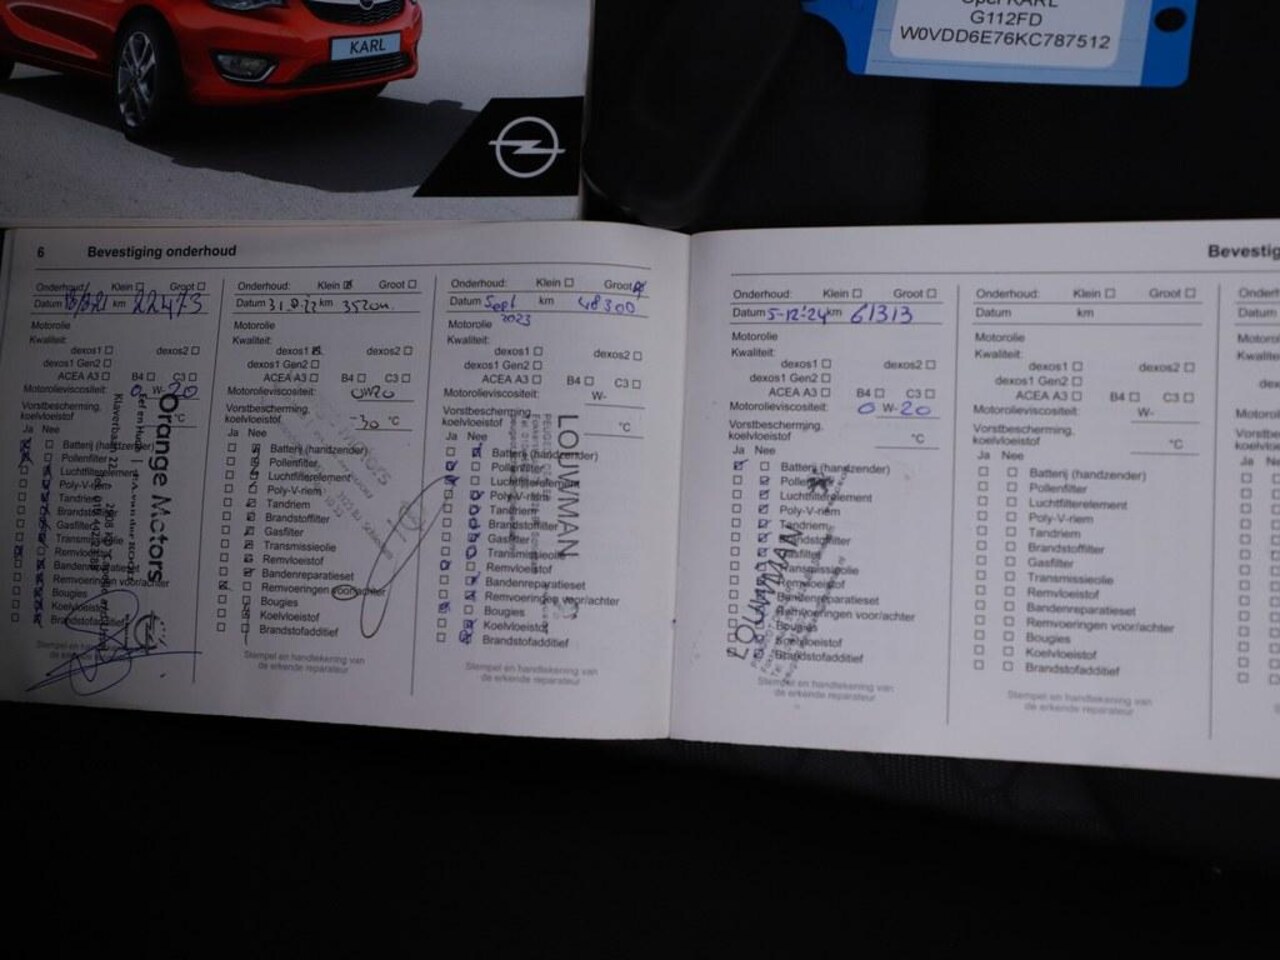 KARL
Opel KARL
G112FD
W0VDD6E76KC787512
6 Bevestiging onderhoud
Onderhoud: Klein Groot
Datum km 22473
Motorolie
Kwaliteit:
dexos1 dexos2
dexos1 Gen2
ACEA A3 B4 C3
Motorolieviscositeit: 0 W-20
Vorstbescherming, koelvloeistof °C
Ja Nee
Batterij (handzender)
Pollenfilter
Luchtfilterelement
Poly-V-riem
Tandriem
Brandstoffilter
Gasfilter
Transmissieolie
Remvloeistof
Bandenreparatieset
Remvoeringen voor/achter
Bougies
Koelvloeistof
Brandstofadditief
Orange Motors
Stempel en handtekening van
de erkende reparateur
Onderhoud: Klein Groot
Datum km
Motorolie
Kwaliteit:
dexos1 dexos2
dexos1 Gen2
ACEA A3 B4 C3
Motorolieviscositeit: 0W20
Vorstbescherming,
koelvloeistof -30 °C
Ja Nee
Batterij (handzender)
Pollenfilter
Luchtfilterelement
Poly-V-riem
Tandriem
Brandstoffilter
Gasfilter
Transmissieolie
Remvloeistof
Bandenreparatieset
Remvoeringen voor/achter
Bougies
Koelvloeistof
Brandstofadditief
Stempel en handtekening van
de erkende reparateur
Onderhoud: Klein Groot
Datum Sept 2023 km 48300
Motorolie
Kwaliteit:
dexos1 dexos2
dexos1 Gen2
ACEA A3 B4 C3
Motorolieviscositeit: W-
Vorstbescherming,
koelvloeistof °C
Ja Nee
Batterij (handzender)
Pollenfilter
Luchtfilterelement
Poly-V-riem
Tandriem
Brandstoffilter
Gasfilter
Transmissieolie
Remvloeistof
Bandenreparatieset
Remvoeringen voor/achter
Bougies
Koelvloeistof
Brandstofadditief
LOUWMAN
Stempel en handtekening van
de erkende reparateur
Onderhoud: Klein Groot
Datum 5-12-'24 km 61313
Motorolie
Kwaliteit:
dexos1 dexos2
dexos1 Gen2
ACEA A3 B4 C3
Motorolieviscositeit: 0 W-20
Vorstbescherming,
koelvloeistof °C
Ja Nee
Batterij (handzender)
Pollenfilter
Luchtfilterelement
Poly-V-riem
Tandriem
Brandstoffilter
Gasfilter
Transmissieolie
Remvloeistof
Bandenreparatieset
Remvoeringen voor/achter
Bougies
Koelvloeistof
Brandstofadditief
LOUWMAN
Stempel en handtekening van
de erkende reparateur
Bevestig
Onderhoud: Klein Groot
Datum km
Motorolie
Kwaliteit:
dexos1 dexos2
dexos1 Gen2
ACEA A3 B4 C3
Motorolieviscositeit: W-
Vorstbescherming,
koelvloeistof °C
Ja Nee
Batterij (handzender)
Pollenfilter
Luchtfilterelement
Poly-V-riem
Tandriem
Brandstoffilter
Gasfilter
Transmissieolie
Remvloeistof
Bandenreparatieset
Remvoeringen voor/achter
Bougies
Koelvloeistof
Brandstofadditief
Stempel en handtekening van
de erkende reparateur
Datum
Ja N